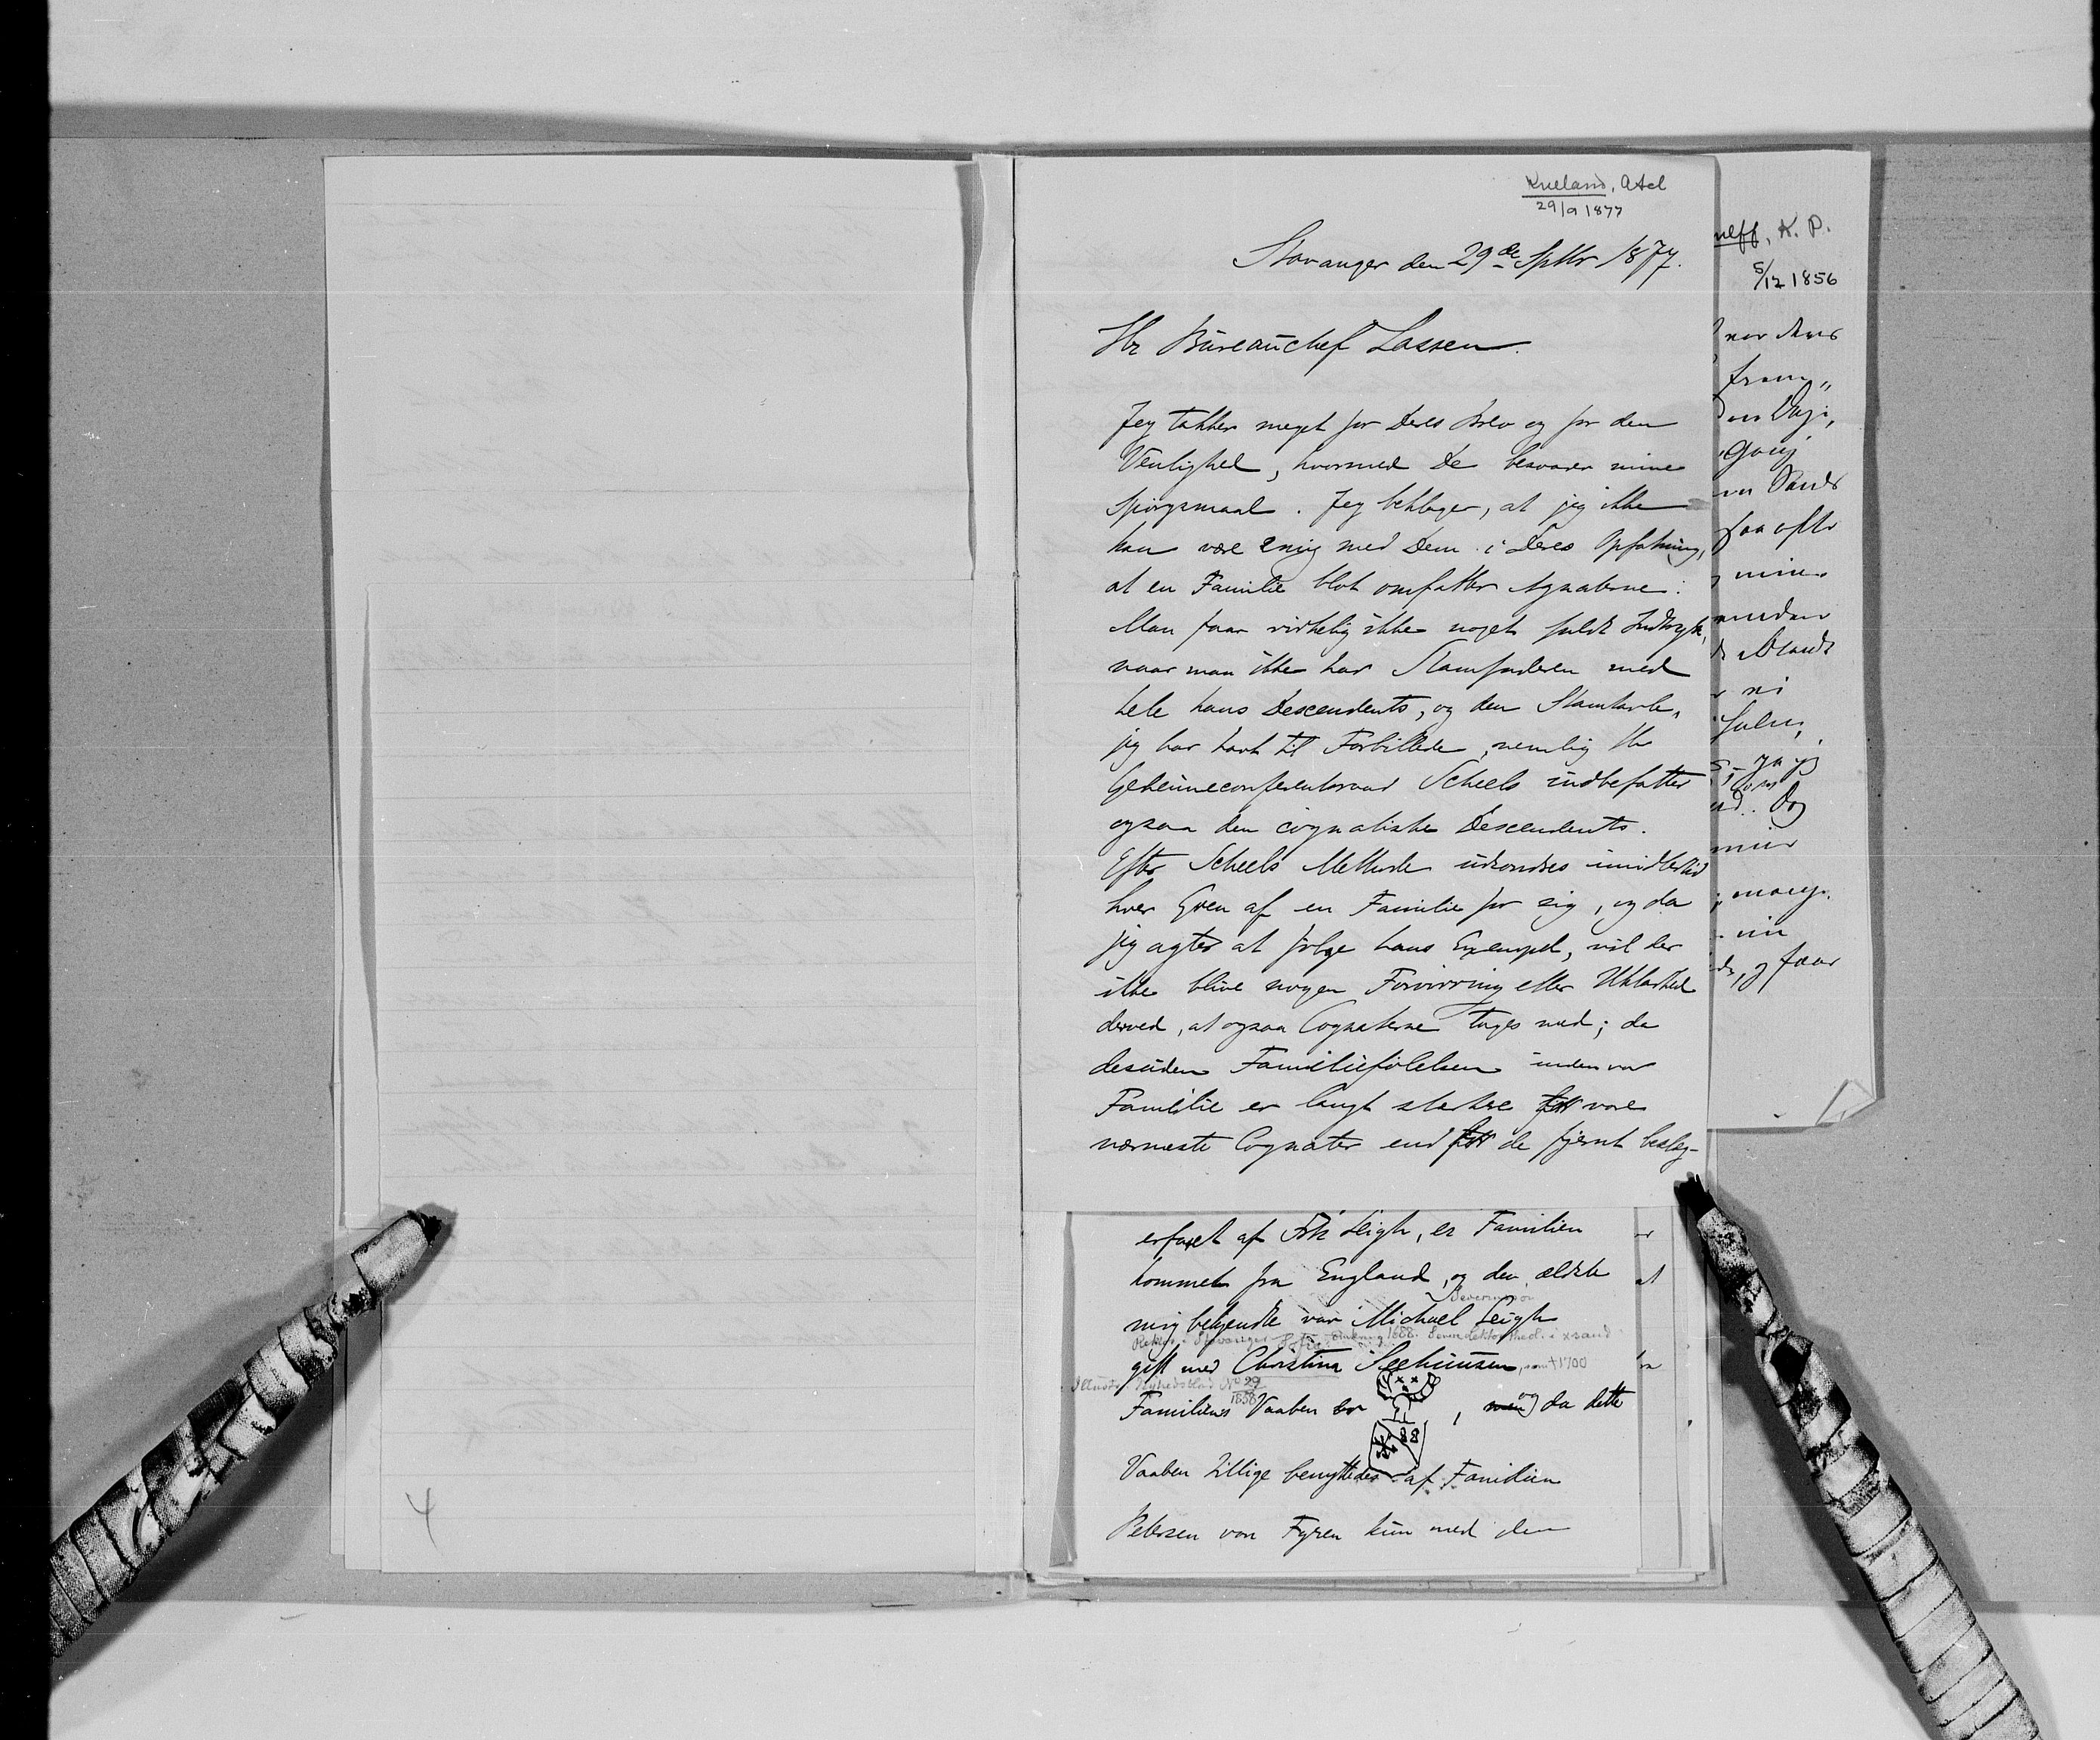 Kielland, Axel
29/9 1877
Stavanger den 29de Septbr 1877.
Hr Büreauchef Lassen.
Jeg takker meget for Deres Brev og for den
Venlighed, hvormed De besvarer mine
Spörgsmaal. Jeg beklager, at jeg ikke
kan være enig med Dem i Deres Opfatning,
at en Familie blot omfatter Agnaterne.
Man faar virkelig ikke noget fuldt Indtryk,
naar man ikke har Stamfaderen med
hele hans Descendents, og den Stamtavle,
jeg har havt til Forbillede, nemlig Hr
Geheimeconferentsraad Scheels indbefatter
ogsaa den cognatiske Descendents.
Efter Scheels Methode udsondres imidlertid
hver Gren af en Familie for sig, og da
jeg agter at følge hans Exempel, vil der
ikke blive nogen Forvirring eller Uklarhed
derved, at ogsaa Cognaterne tages med; da
desuden Familiefølelsen inden vor
Familie er langt stærkere for vore
nærmeste Cognater end for de fjernt beslæg-
erfaret af Frk Leigh, er Familien
kommet fra England, og den ældste
mig bekjendte var Michael Leigh
Rektor i Stavanger omkring 1688.
gift med Christina Seehuusen, † 1700
Illustr. Nyhedsblad No 29
1858
Familiens Vaaben er , men og da dette
88
Vaaben tillige benyttedes af Familien
Petersen von Fyren kun med den
4
K. P.
5/12 1856
nor deres
frem„
Gang
saa ofte
mine
vi
Dog
min
og faar
er
at